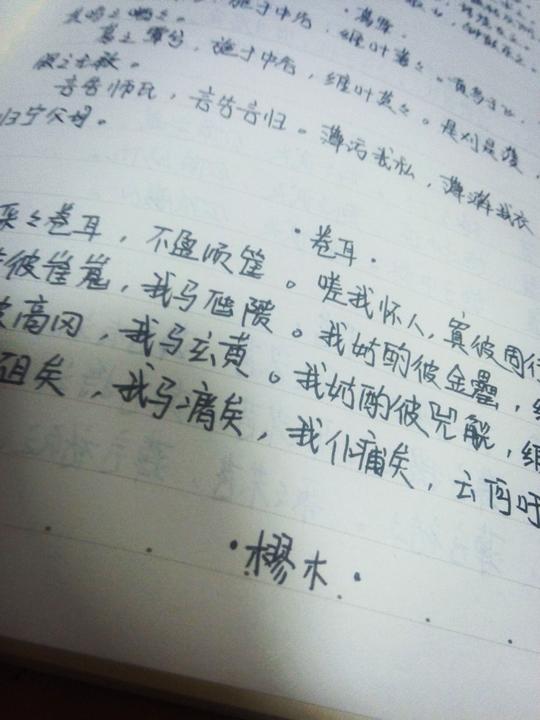 ·葛覃·
葛之覃兮，施于中谷，维叶萋之。
葛之覃兮，施于中谷，维叶莫之。是刈是濩，
服之无斁。
言告师氏，言告言归。薄污我私，薄澣我衣
归宁父母。
·卷耳·
采之卷耳，不盈顷筐。嗟我怀人，寘彼周行
彼崔嵬，我马虺隤。我姑酌彼金罍，
高冈，我马玄黄。我姑酌彼兕觥，维
砠矣，我马瘏矣，我仆痡矣，云何吁
·樛木·